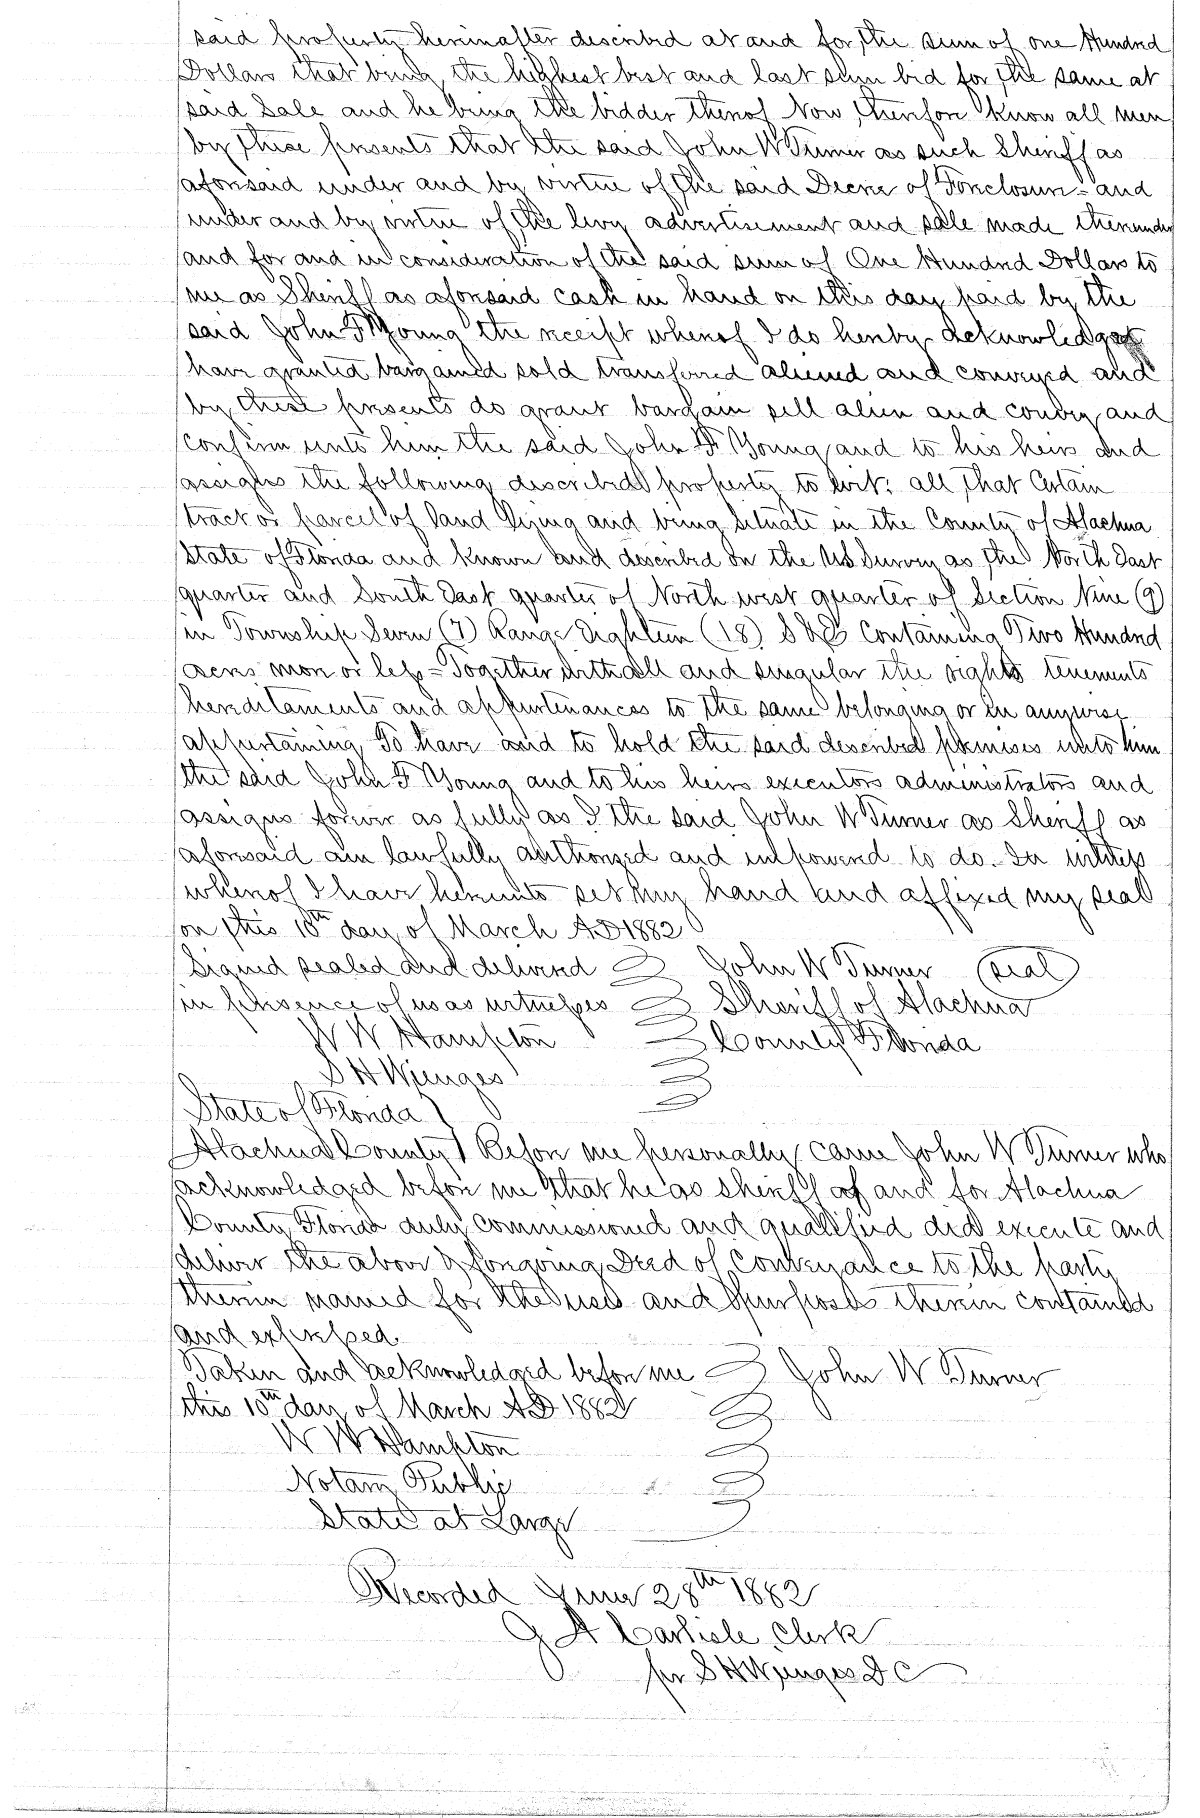 said property hereinafter described at and for the sum of one Hundred
Dollars that being the highest best and last sum bid for the same at
said Sale and he being the bidder thereof Now therefore know all men
by these presents that the said John W Turner as such Sheriff as
aforesaid under and by virtue of the said Decree of Foreclosure = and
under and by virtue of the levy advertisement and sale made thereunder
and for and in consideration of the said sum of One Hundred Dollars to
me as Sheriff as aforesaid cash in hand on this day paid by the
said John F Young the receipt whereof I do hereby acknowledge
have granted bargained sold transferred aliened and conveyed and
by these presents do grant bargain sell alien and convey and
confirm unto him the said John F Young and to his heirs and
assigns the following described property to wit: all that Certain
tract or parcel of land lying and being situate in the County of Alachua
State of Florida and known and described on the US Survey as the North East
quarter and South East quarter of North west quarter of Section Nine (9)
in Township Seven (7) Range Eighteen (18) S & E Containing Two Hundred
acres more or less = Together with all and singular the rights tenements
hereditaments and appurtenances to the same belonging or in anywise
appertaining To have and to hold the said described premises unto him
the said John F Young and to his heirs executors administrators and
assigns forever as fully as I the said John W Turner as Sheriff as
aforesaid am lawfully authorized and empowered to do. In witness
whereof I have hereunto set my hand and affixed my seal
on this 10th day of March AD 1882
Signed sealed and delivered John W Turner (seal)
in presence of us as witnesses Sheriff of Alachua
W W Hampton County Florida
S H Wienges
State of Florida
Alachua County } Before me personally came John W Turner who
acknowledged before me that he as sheriff of and for Alachua
County Florida duly commissioned and qualified did execute and
deliver the above & foregoing Deed of Conveyance to the party
therein named for the uses and purposes therein contained
and expressed.
Taken and acknowledged before me John W Turner
this 10th day of March AD 1882
W W Hampton
Notary Public
State at Large
Recorded June 28th 1882
J A Carlisle Clerk
per S H Wienges D C